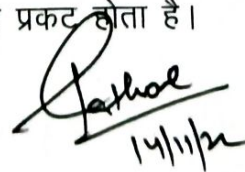 प्रकट होता है।
14/11/22